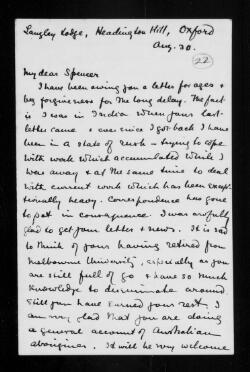 Langley Lodge, Headington Hill, Oxford
Aug. 30.
22
My dear Spencer
I have been owing you a letter for ages &
beg forgiveness for the long delay. The fact
is I was in India when your last
letter came & ever since I got back I have
been in a state of rush – trying to cope
with work which accumulated while I
was away & at the same time to deal
with current work which has been excep-
tionally heavy. Correspondence has gone
to pot in consequence. I was awfully
glad to get your letter & news. It is sad
to think of your having retired from
Melbourne University, especially as you
are still full of go & have so much
knowledge to disseminate around
Still you have earned your rest. I
am very glad that you are doing
a general account of Australian
aborigines. It will be very welcome